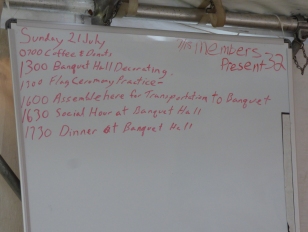 Sunday 21 July
0700 Coffee & Donuts
1300 Banquet Hall Decorating
1300 Flag Ceremony Practice
1600 Assemble here for Transportation to Banquet
1630 Social Hour at Banquet Hall
1730 Dinner at Banquet Hall
Members
Present 32